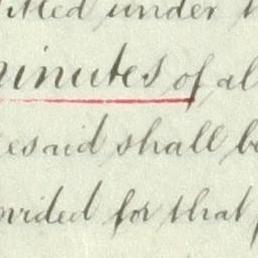 itted under
minutes of al
esaid shall be
ovided for that